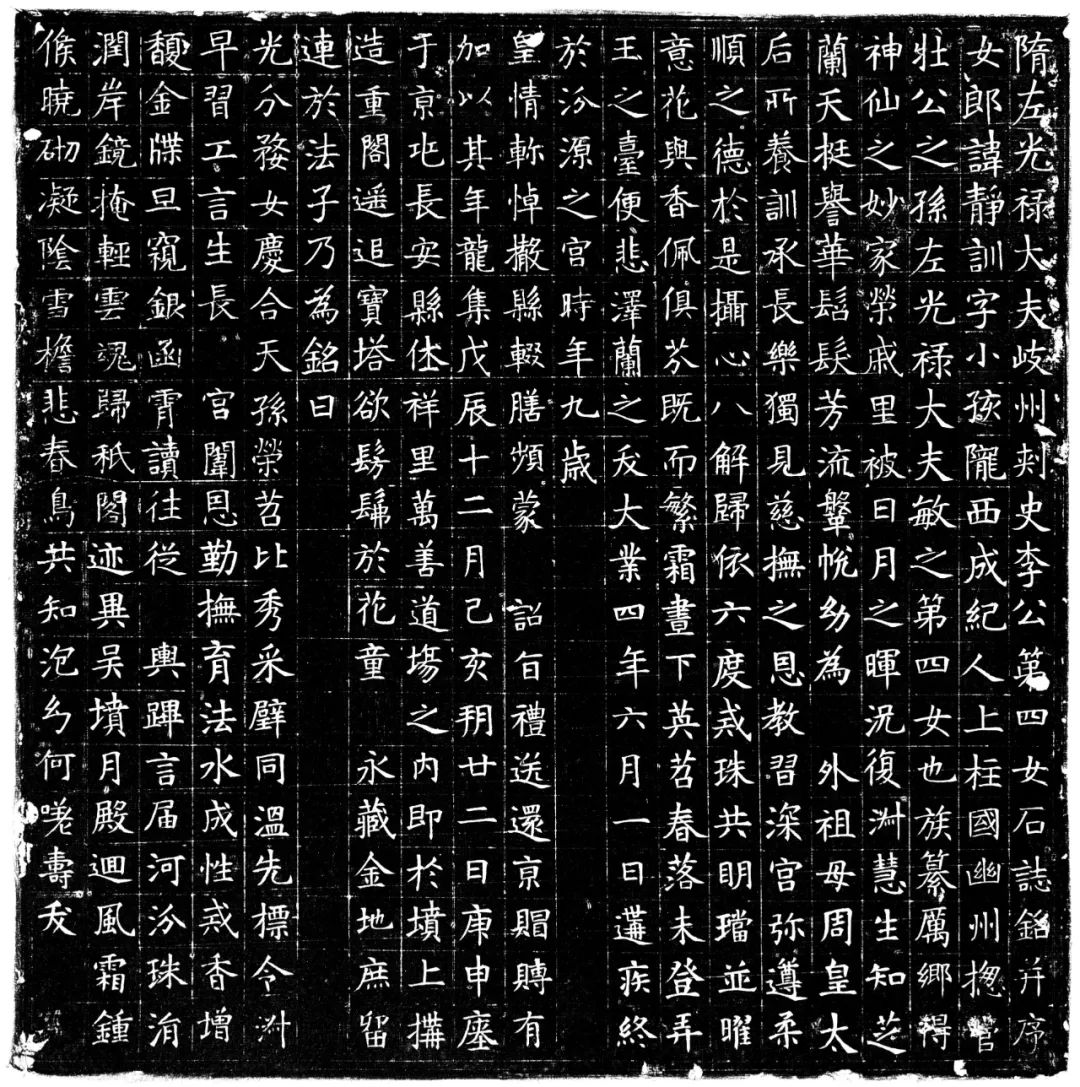 隋左光禄大夫岐州刾史李公第四女石誌銘并序
女郎諱靜訓字小孩隴西成紀人上柱國幽州揔管
壯公之孫左光禄大夫敏之第四女也族纂厲鄉得
神仙之妙家榮戚里被日月之暉况復淋慧生知芝
蘭天挺譽華髫髮芳流鞶帨幼為 外祖母周皇太
后所養訓承長樂獨見慈撫之恩教習深宮弥遵柔
順之德於是攝心八解歸依六度戒珠共明璫並曜
意花與香佩俱芬既而繁霜晝下英苕春落未登弄
玉之臺便悲澤蘭之夭大業四年六月一日遘疾終
於汾源之宮時年九歳
皇情軫悼撤縣輟膳頻蒙 詔旨禮送還京賵賻有
加以其年龍集戊辰十二月己亥朔廿二日庚申瘞
于京北長安縣休祥里萬善道塲之内即於墳上搆
造重閣遥追寶塔欲髣髴於花童 永藏金地庶留
連於法子乃為銘曰
光分婺女慶合天孫榮苕比秀采璧同溫先標令淋
早習工言生長 宮闈恩勤撫育法水成性戒香增
馥金牒旦窺銀函霄讀往從 輿蹕言届河汾珠涓
潤岸鏡掩輕雲魂歸秖閣迹異吳墳月殿迴風霜鍾
候曉砌凝陰雪檐悲春鳥共知泡幻何嗟壽夭